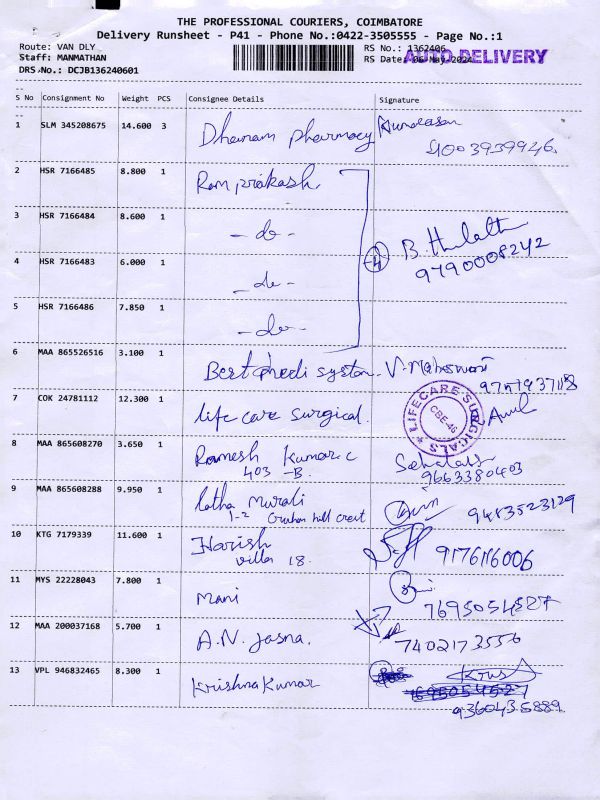 THE PROFESSIONAL COURIERS, COIMBATORE
Delivery Runsheet - P41 - Phone No.:0422-3505555 - Page No.:1
Route: VAN DLY
Staff: MANMATHAN
DRS No.: DCJB136240601
RS No.: 1362406
RS Date: 06 May 2024
AUTO DELIVERY
S No Consignment No Weight PCS Consignee Details Signature
1 SLM 345208675 14.600 3 Dhanam pharmacy
2 HSR 7166485 8.800 1 Ram prakash.
3 HSR 7166484 8.600 1 - do -
4 HSR 7166483 6.000 1 - do - 4 B. 9790008242
5 HSR 7166486 7.850 1 - do -
6 MAA 865526516 3.100 1 Best medi system
7 COK 24781112 12.300 1 life care surgical.
LIFECARE SURGICALS
CBE-46
8 MAA 865608270 3.650 1 Ramesh Kumar.c
403 -B. 9663380403
9 MAA 865608288 9.950 1 latha murali
1-2 hill crest 9483523129
10 KTG 7179339 11.600 1 Harish
villa 18. 9176116006
11 MYS 22228043 7.800 1 Mani
7695054527
12 MAA 200037168 5.700 1 A.N. Jasna.
7402173556
13 VPL 946832465 8.300 1 Krishna Kumar
7695054527
9360435889.